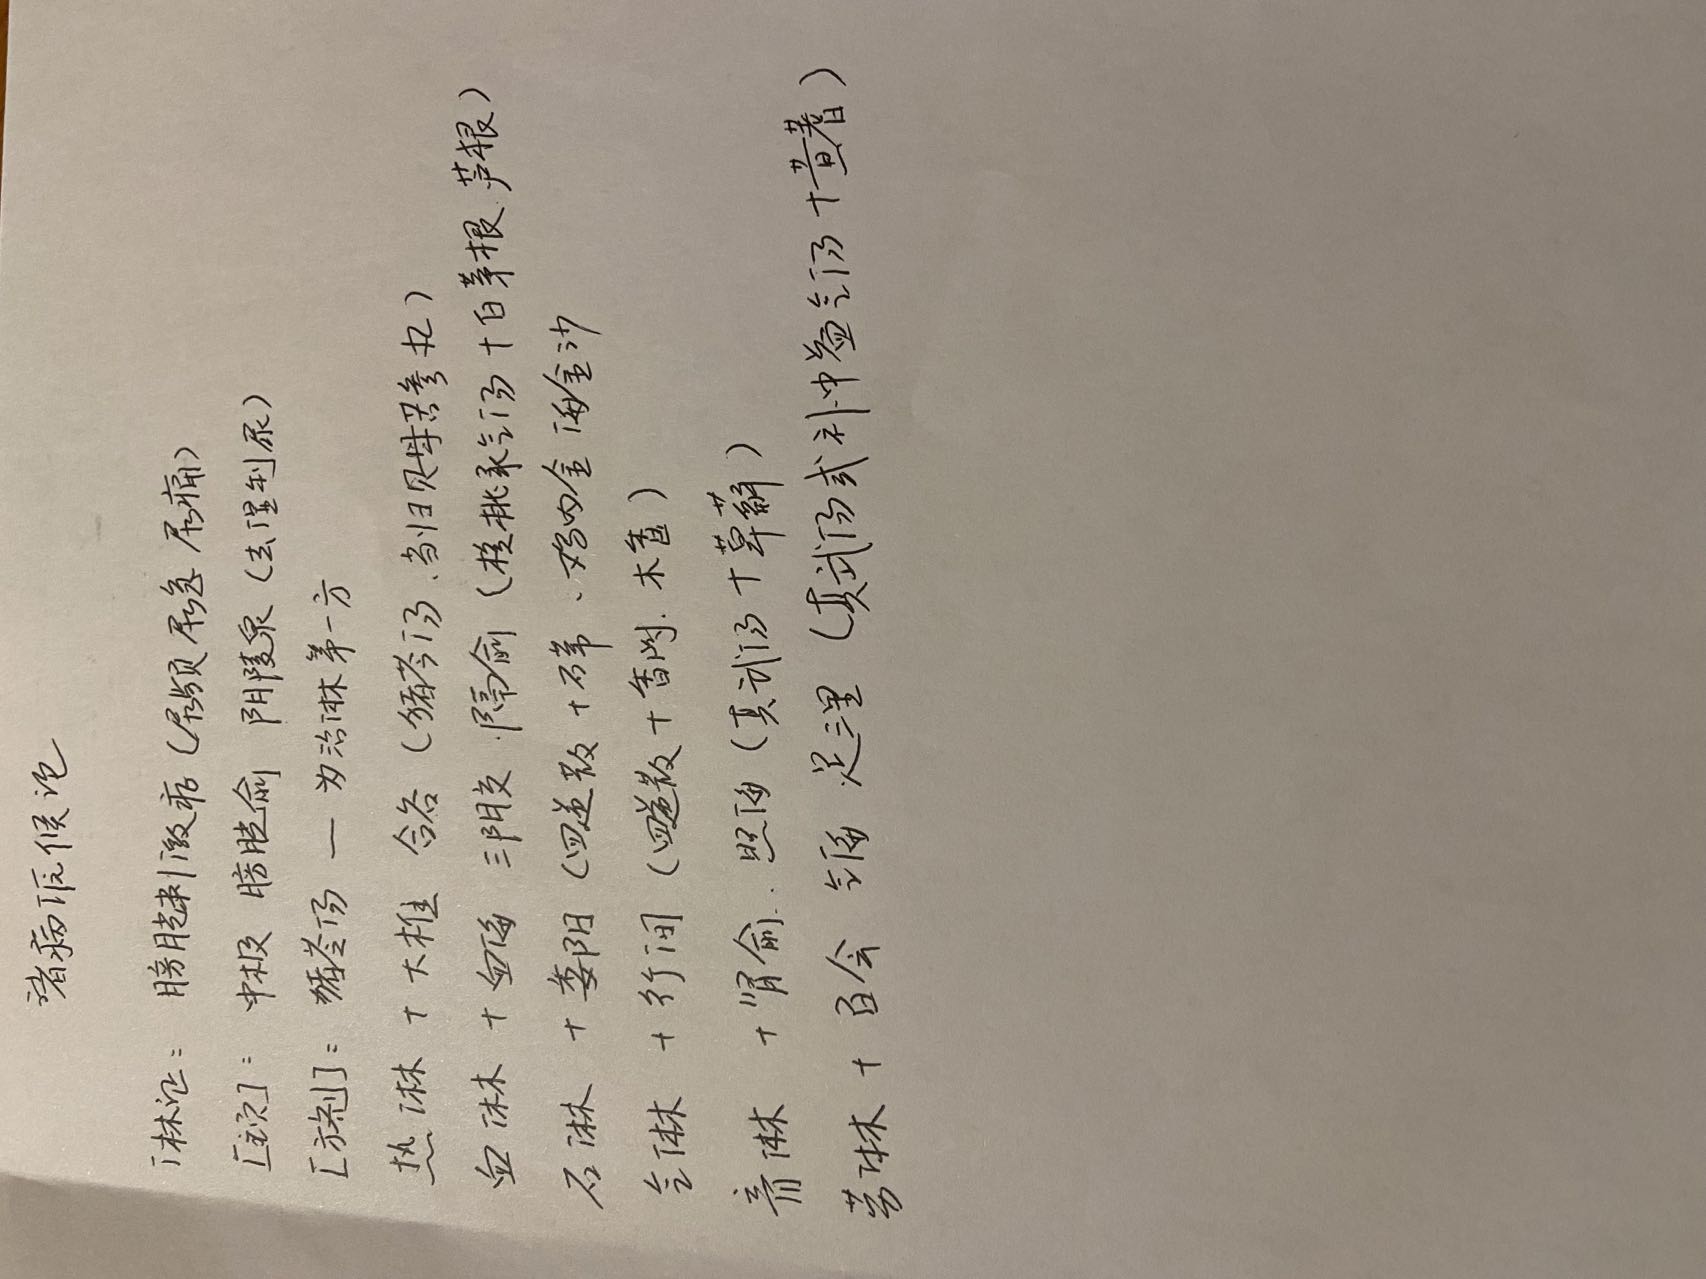 诸病源候论
淋证: 膀胱刺激症 (尿频 尿急 尿痛)
[主穴]: 中极 膀胱俞 阴陵泉 (去湿利尿)
[方剂]: 猪苓汤 — 为治淋第一方
热淋 + 大椎 合谷 (猪苓汤、当归贝母苦参丸)
血淋 + 血海 三阴交 隔俞 (桃核承气汤 + 白茅根 芦根)
石淋 + 委阳 (四逆散 + 硝、鸡内金 海金沙
气淋 + 行间 (四逆散 + 香附. 木香)
膏淋 + 肾俞. 照海 (真武汤 + 萆薢)
劳淋 + 百会 气海 足三里 (真武汤或补中益气汤 + 黄芪)